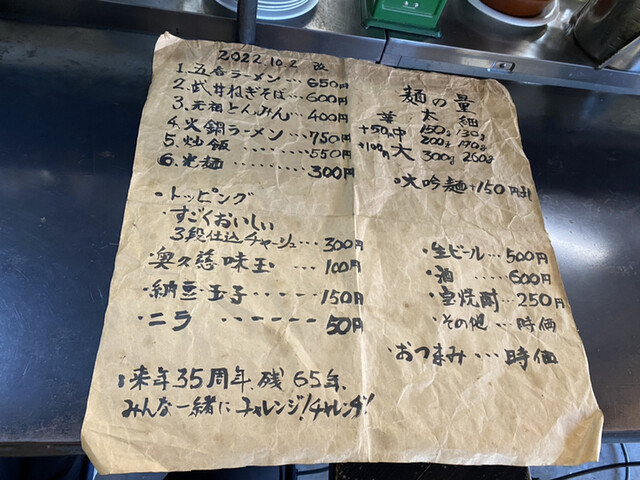 2022.10.2 改
1.五香ラーメン…650円
2.武井ねぎそば…600円
3.元祖とんみん…400円
4.火鍋ラーメン…750円
5.炒飯…550円
6.光麺…300円
・トッピング
・すごくおいしい
3段仕込チャーシュ…300円
・奥久慈味玉…100円
・納豆・玉子……150円
・ニラ……50円
・来年35周年、残65年、
みんな一緒にチャレンジ!チャレンヂ!
麺の量
並 太 細
150g 130g
+50円 中 200g 170g
+100円 大 300g 260g
・大吟麺+150円
・生ビール…500円
・酒…600円
・宝焼酎…250円
・その他…時価
・おつまみ…時価